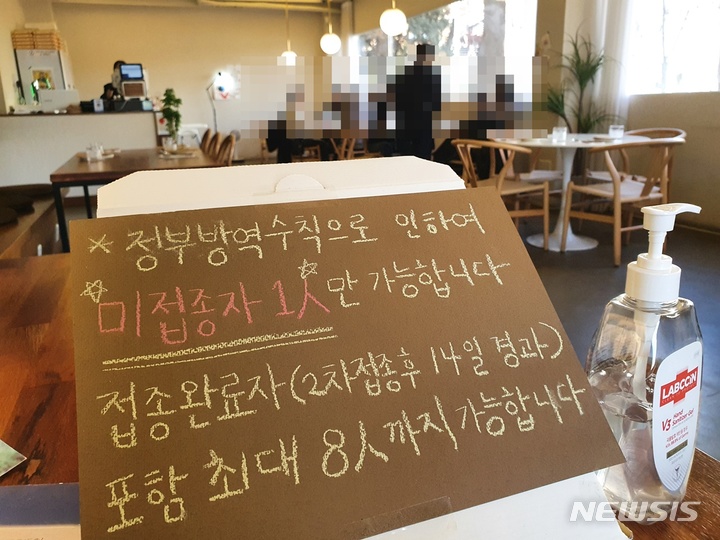 * 정부방역수칙으로 인하여
☆ 미접종자 1人☆만 가능합니다
접종완료자(2차접종후 14일 경과)
포함 최대 8人까지 가능합니다
LABCCIN
V3 Hand Sanitizer Gel
NEWSIS